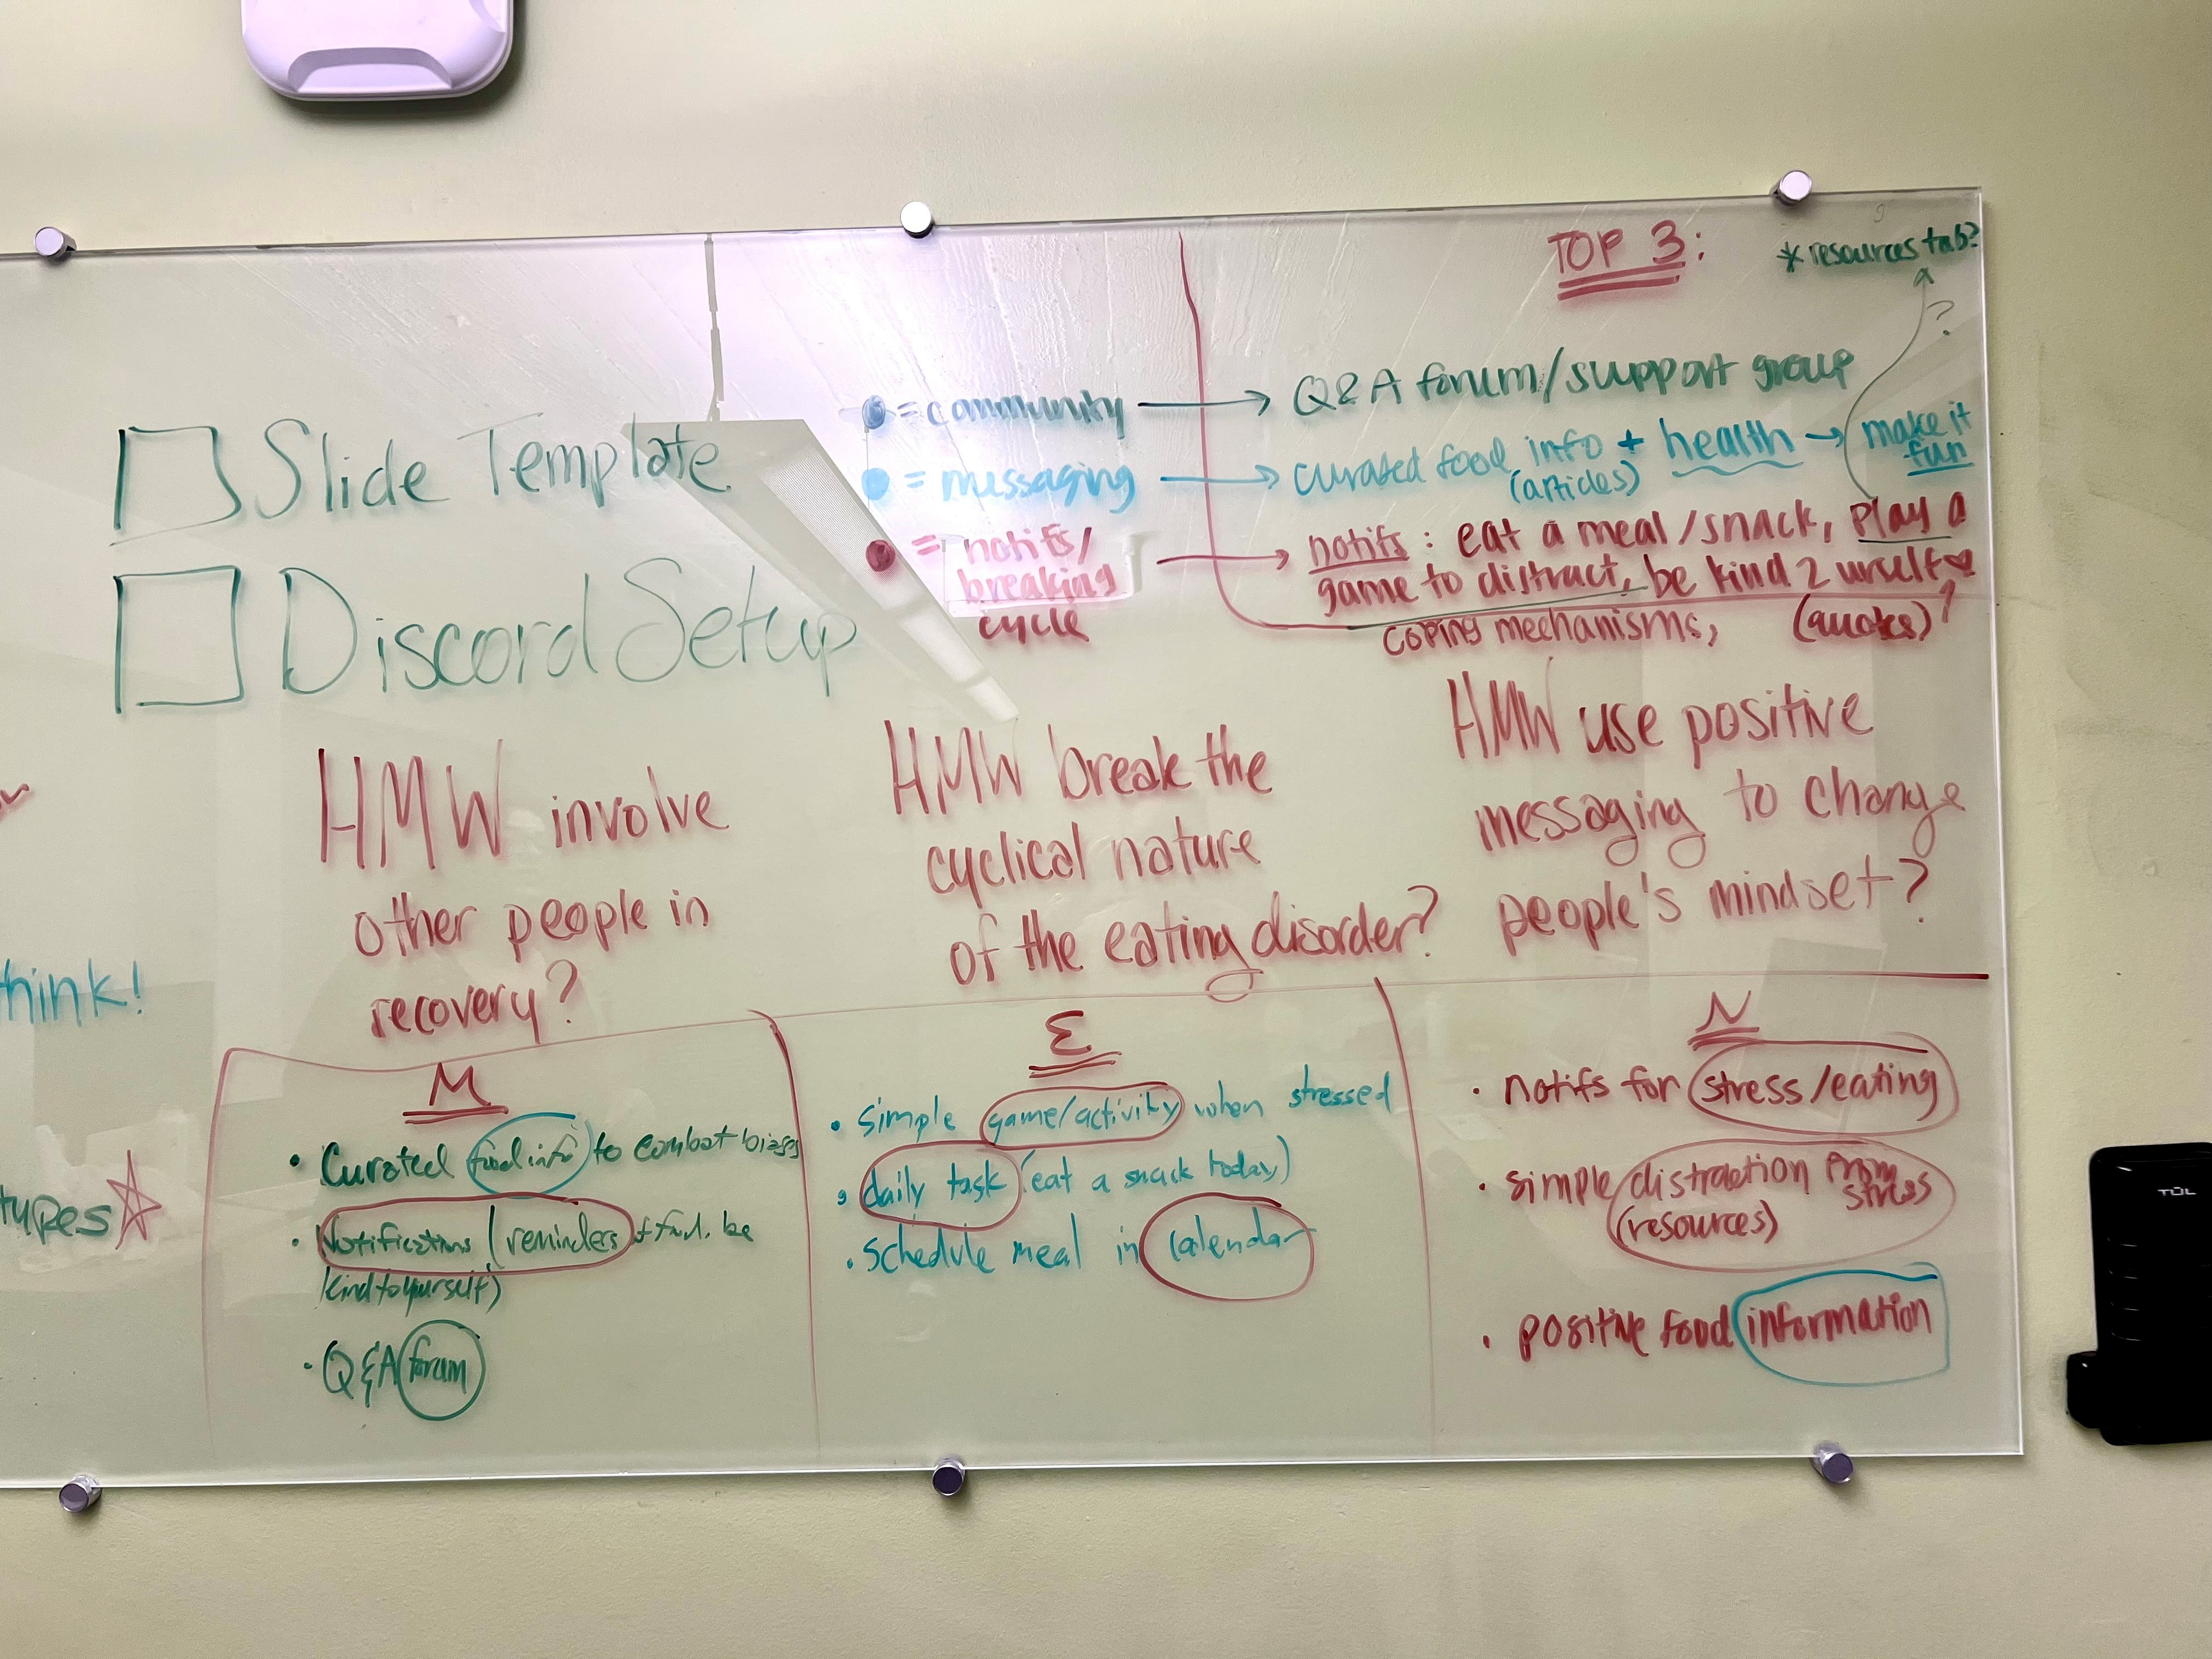 TOP 3:
* resources tab?
?
= community → Q&A forum/support group
= messaging → curated food info + health → make it
(articles)
fun
= notifs/
breaking
cycle
→ notifs: eat a meal/snack, play a
game to distract, be kind 2 urself ♡
coping mechanisms, (quotes)
Slide Template
Discord Setup
HMW involve
other people in
recovery?
HMW break the
cyclical nature
of the eating disorder?
HMW use positive
messaging to change
people's mindset?
think!
types ☆
M
• Curated food info to combat biases
• Notifications (reminders be
kind to yourself)
• Q&A forum
E
• simple game/activity when stressed
• daily task (eat a snack today)
• schedule meal in calendar
N
• notifs for stress/eating
• simple distraction from
stress
(resources)
• positive food information
TUL